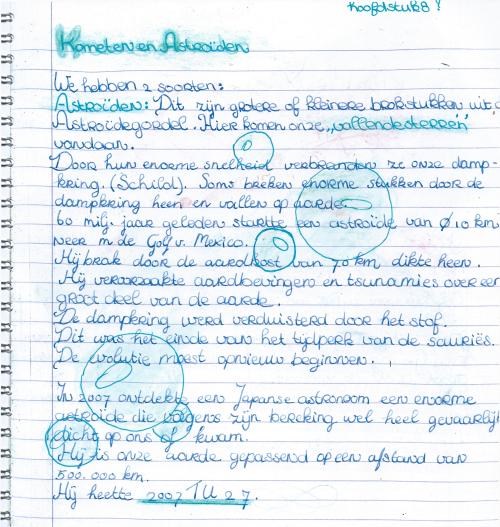 Hoofdstuk 8
Kometen en Astroïden
We hebben 2 soorten:
Astroïden: Dit zijn grotere of kleinere brokstukken uit d
Astroïdegordel. Hier komen onze „vallende sterren”
vandaan.
Door hun enorme snelheid verbranden ze onze damp-
kring. (Schild). Soms breken enorme stukken door de
dampkring heen en vallen op aarde.
60 milj. jaar geleden stortte een astroïde van Ø 10 km
neer in de Golf v. Mexico.
Hij brak door de aardkost van 70 km dikte heen.
Hij veroorzaakte aardbevingen en tsunamies over een
groot deel van de aarde.
De dampkring werd verduisterd door het stof.
Dit was het einde van het tijdperk van de sauriës.
De evolutie moest opnieuw beginnen.
In 2007 ontdekte een Japanse astronoom een enorme
astroïde die volgens zijn bereking wel heel gevaarlijk
dicht op ons af kwam.
Hij is onze aarde gepasseerd op een afstand van
500.000 km.
Hij heette 2007 TU 27.